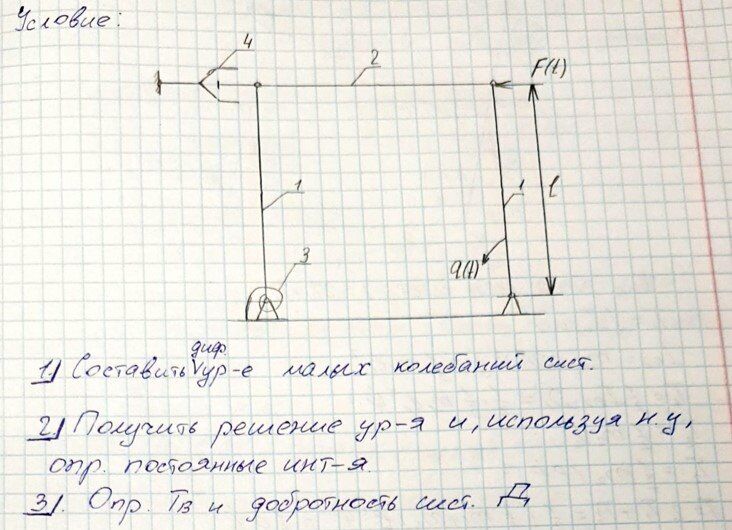 Условие:
4
2
F(t)
1
1
l
3
q(t)
1) Составить диф. ур-е малых колебаний сист.
2) Получить решение ур-я и, используя н.у,
опр. постоянные инт-я.
3). Опр. Тв и добротность сист. Д